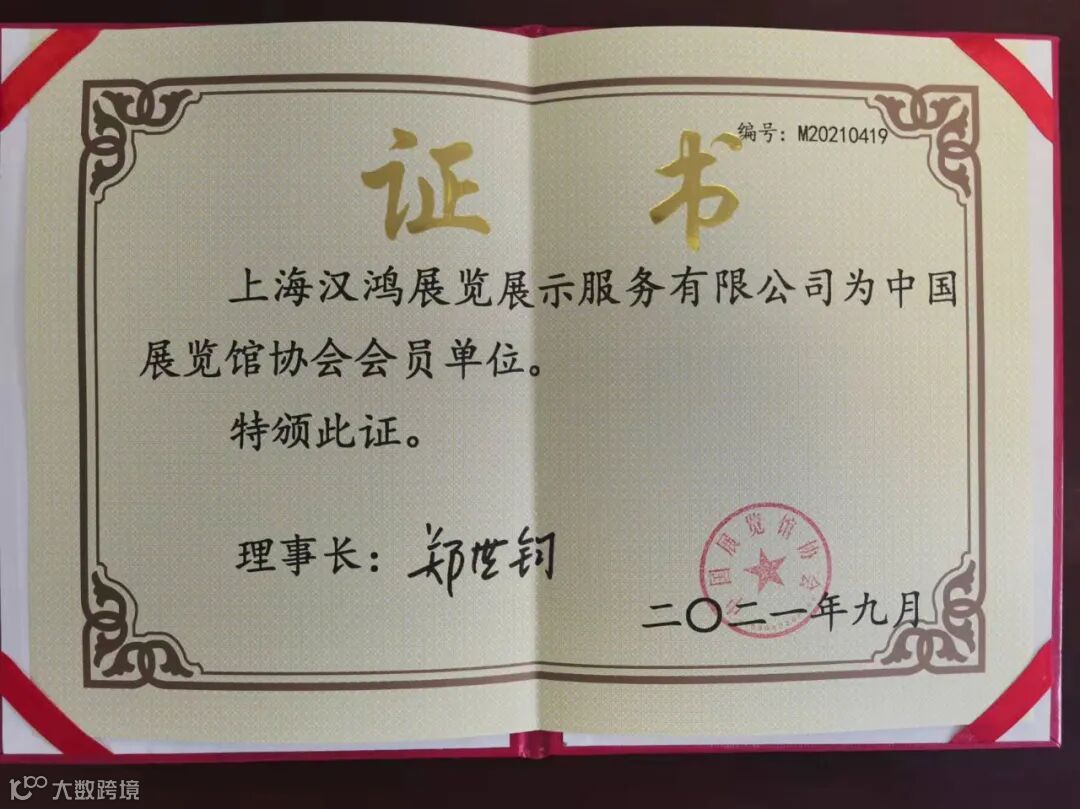 编号：M20210419
证书
上海汉鸿展览展示服务有限公司为中国
展览馆协会会员单位。
特颁此证。
理事长：郑世钧
中国展览馆协会
二〇二一年九月
大数跨境